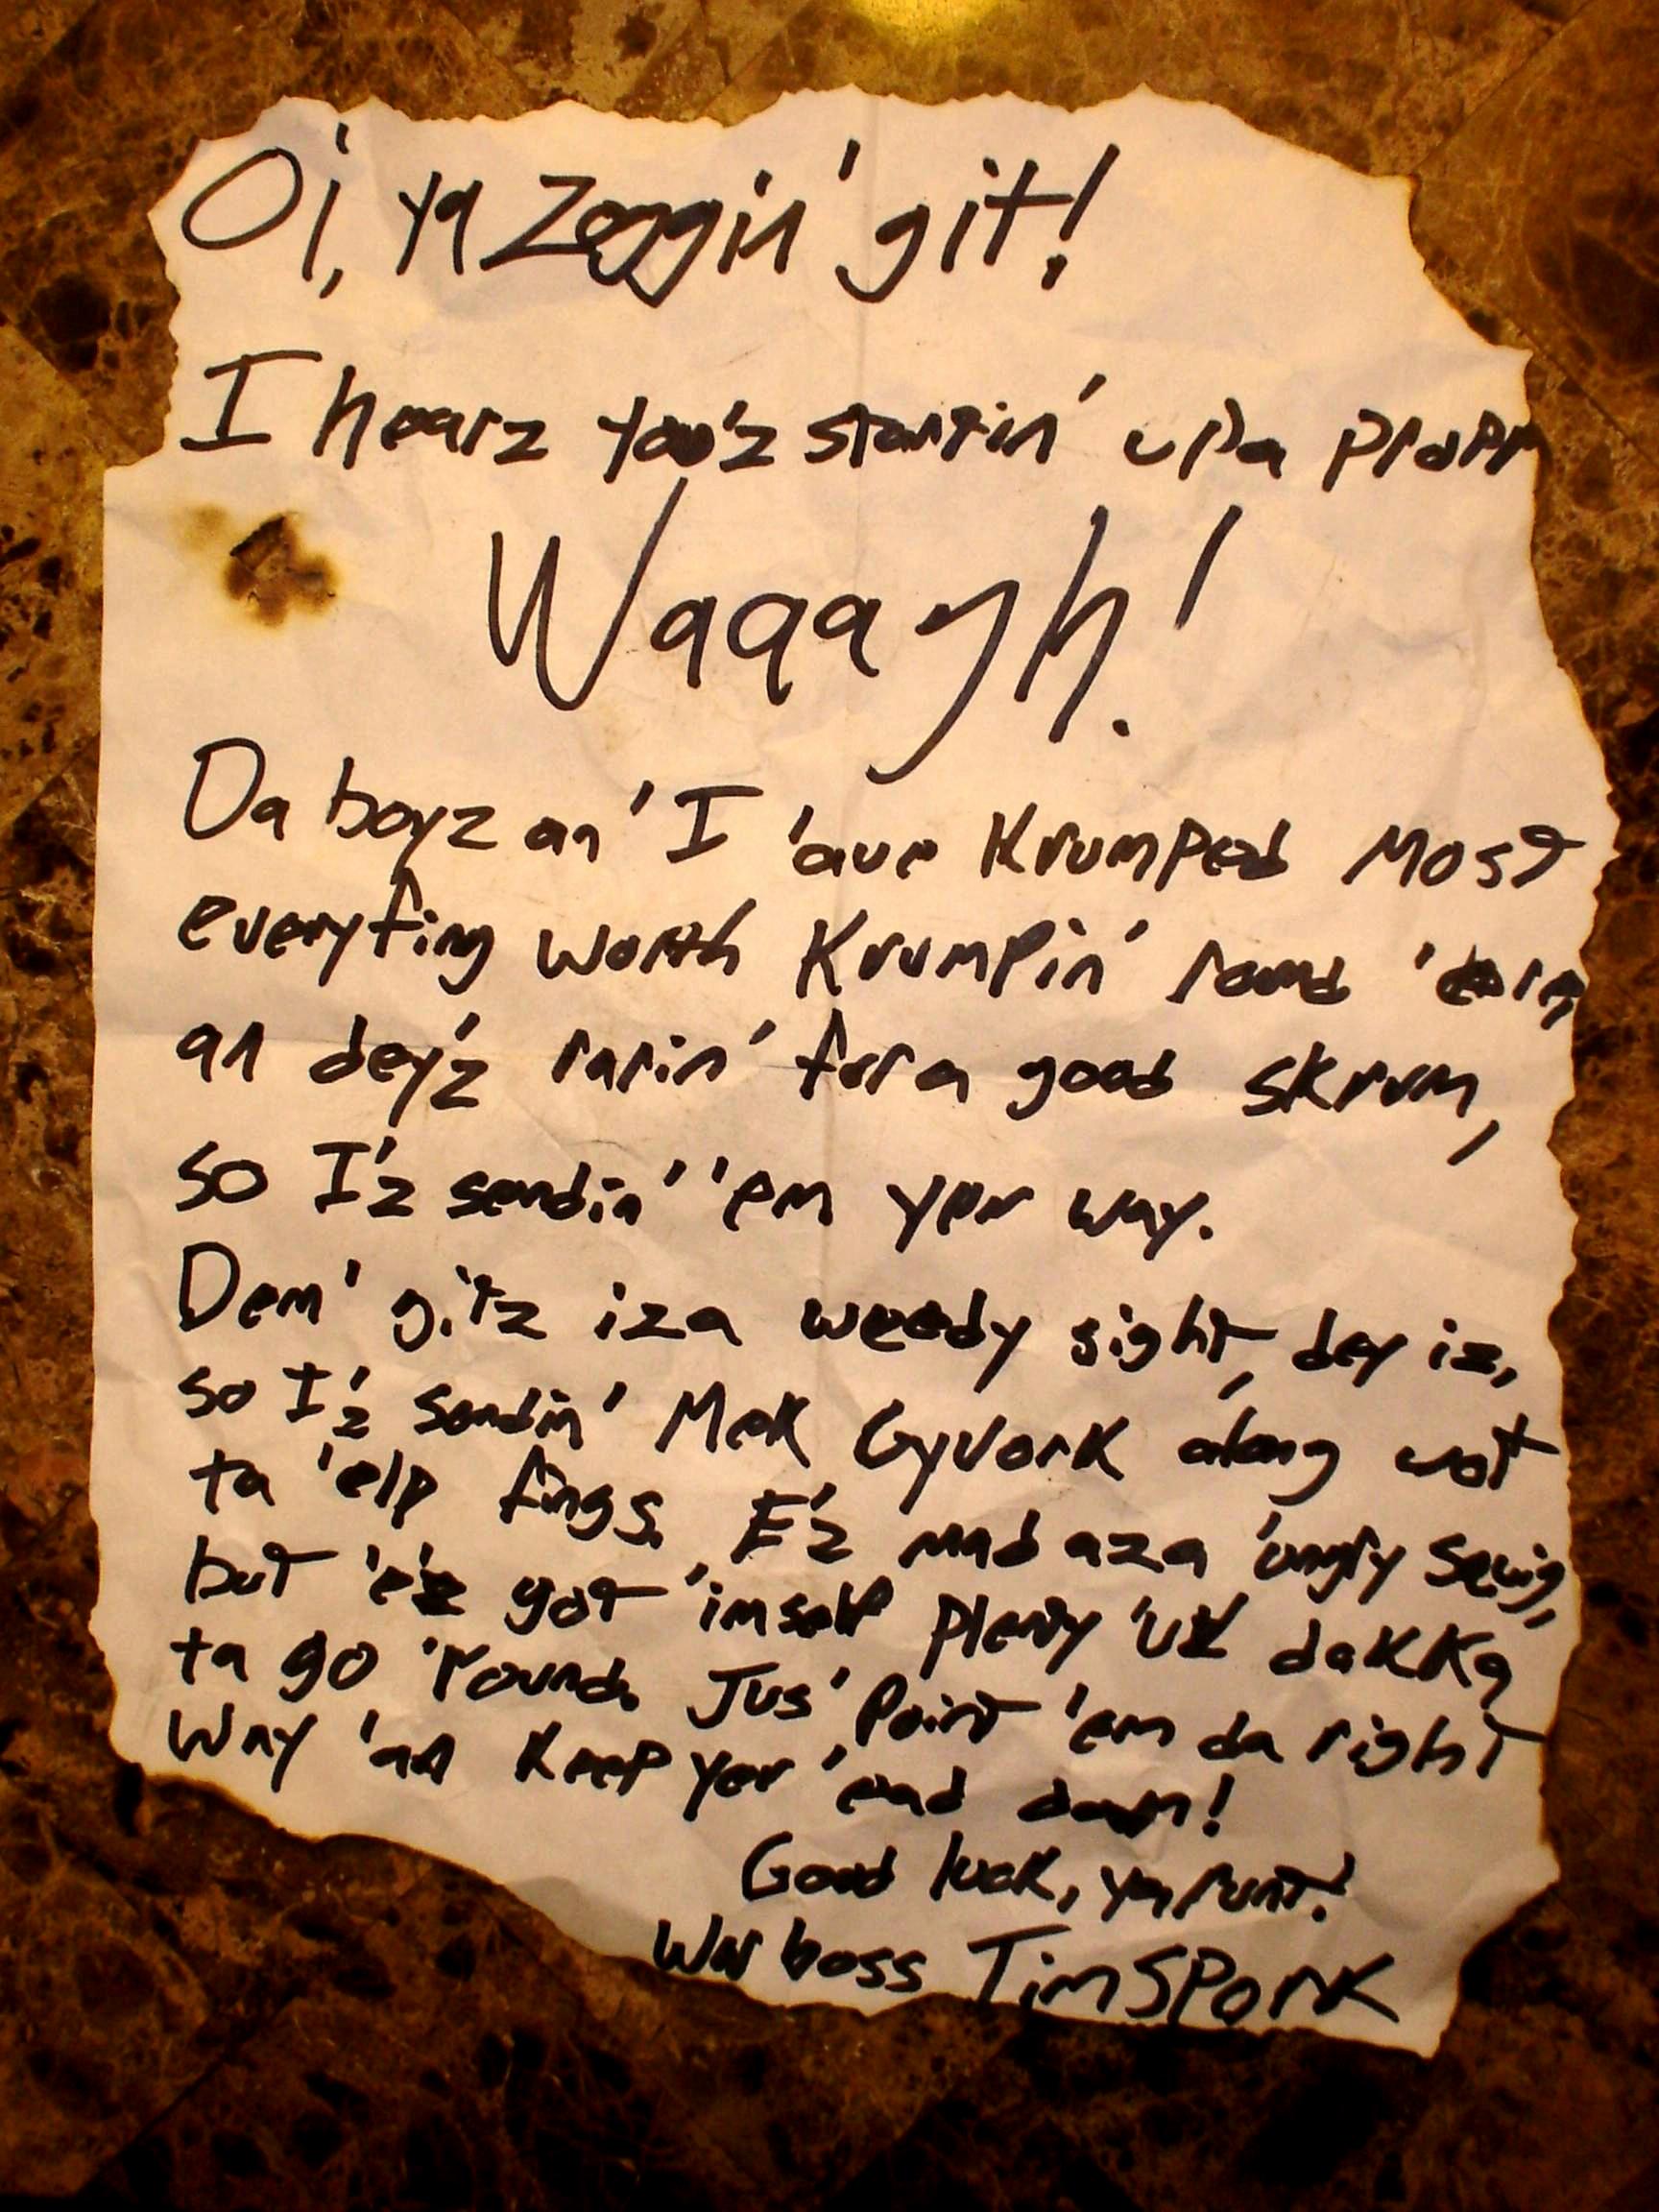 Oi, ya Zoggin' git!
I hearz you'z startin' up a propr
Waaagh!
Da boyz an' I 'ave Krumped Most
everyfing worth Krumpin' round 'ere,
an dey'z rarin' fura good skrum,
so I'z sendin' 'em yer way.
Dem' gitz iza weedy sight, dey iz,
so I'z sendin' Mek Gyvork along wot
ta 'elp fings. E'z mad aza 'ungry Sqwig,
but 'e'z got 'imself plenty 'uv dakka
ta go 'round. Jus' Point 'em da right
Way 'an Keep yer 'ead down!
Good luck, ya runt!
Warboss TimSPork